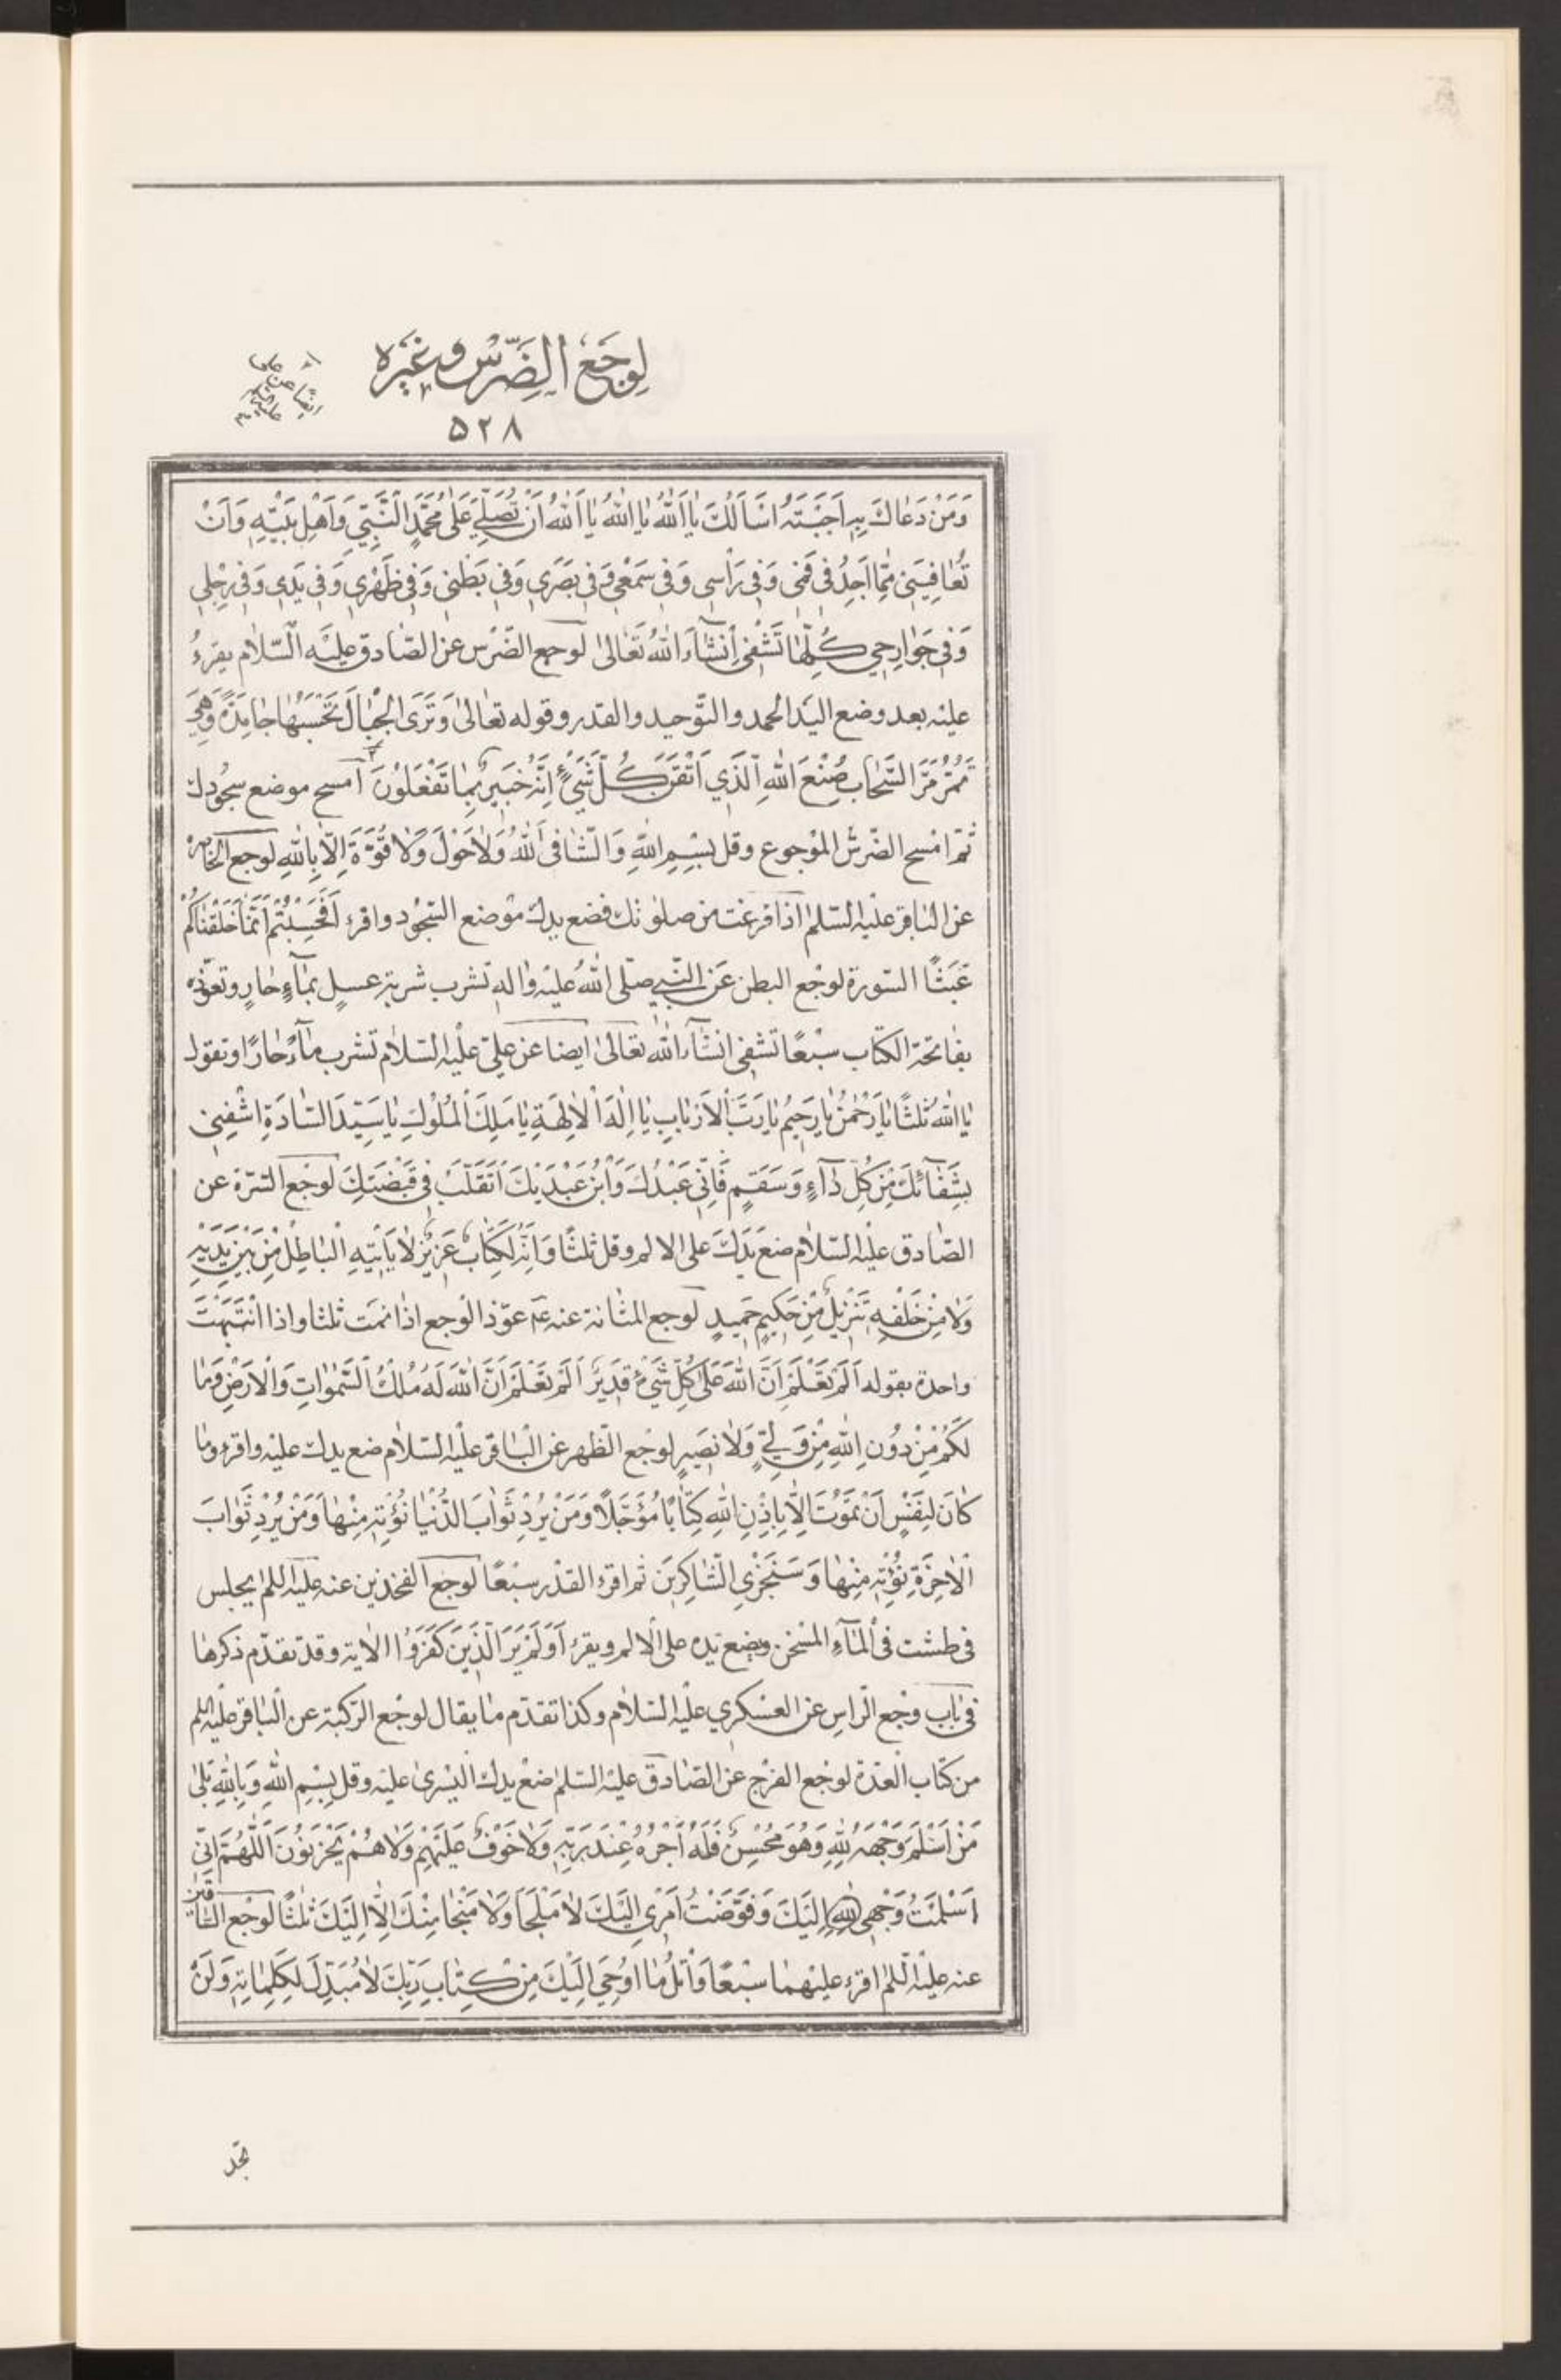 لِوَجَعِ الضِّرْسِ وَغَيْرِهِ
ايضًا عن علي عليه السلم
۵۲۸
وَمَنْ دَعَاكَ بِهِ اَجَبْتَهُ اَسْاَلُكَ يَا اَللّٰهُ يَا اَللّٰهُ يَا اَللّٰهُ اَنْ تُصَلِّيَ عَلٰى مُحَمَّدٍ النَّبِيِّ وَاَهْلِ بَيْتِهِ وَاَنْ
تُعَافِيَنِي مِمَّا اَجِدُ فِي فَمِي وَفِي رَاْسِي وَفِي سَمْعِي وَفِي بَصَرِي وَفِي بَطْنِي وَفِي ظَهْرِي وَفِي يَدِي وَفِي رِجْلِي
وَفِي جَوَارِحِي كُلِّهَا تَشْفِى اِنْشَآءَ اللّٰهُ تَعَالٰى لوجع الضّرْس عن الصّادق عليْه السّلام يقرءُ
عليْه بعد وضع اليَد الحمد والتّوحيد والقدر وقوله تعَالىٰ وَتَرَى الْجِبَالَ تَحْسَبُهَا جَامِدَةً وَهِيَ
تَمُرُّ مَرَّ السَّحَابِ صُنْعَ اللّٰهِ الَّذِي اَتْقَنَ كُلَّ شَيْءٍ اِنَّهُ خَبِيرٌ بِمَا تَفْعَلُونَ امسح موضع سجُودك
ثمّ امْسح الضّرسَ المَوْجوع وقل بِسْمِ اللّٰهِ وَالشَّافِى اَللّٰهُ وَلَا حَوْلَ وَلَا قُوَّةَ اِلَّا بِاللّٰهِ لوجع الخاصرة
عن الباقر عليْه السّلم اذا فرغت من صلوتك فضع يدك موْضع السّجُود واقرء اَفَحَسِبْتُمْ اَنَّمَا خَلَقْنَاكُمْ
عَبَثًا السّورة لوجع البطن عَن النّبي صلّى اللّٰهُ عليْه واله تشرب شربة عسلٍ بمآءٍ حارٍ وتعوّذه
بفاتحة الكتاب سبْعًا تشفى انشآء اللّٰه تعَالىٰ ايضا عن عليّ عليْه السّلام تشرب مآءً حارًا وتقول
يَا اَللّٰهُ ثلثًا يَا رَحْمٰنُ يَا رَحِيمُ يَا رَبَّ الْاَرْبَابِ يَا اِلٰهَ الْاٰلِهَةِ يَا مَلِكَ الْمُلُوكِ يَا سَيِّدَ السَّادَةِ اشْفِنِي
بِشِفَآئِكَ مِنْ كُلِّ دَآءٍ وَسَقَمٍ فَاِنِّي عَبْدُكَ وَابْنُ عَبْدَيْكَ اَتَقَلَّبُ فِي قَبْضَتِكَ لوجع السّرّة عن
الصّادق عليْه السّلام ضعْ يَدَكَ على الالم وقل ثلثًا وَاِنَّهُ لَكِتَابٌ عَزِيزٌ لَا يَاْتِيهِ الْبَاطِلُ مِنْ بَيْنِ يَدَيْهِ
وَلَا مِنْ خَلْفِهِ تَنْزِيلٌ مِنْ حَكِيمٍ حَمِيدٍ لوجع المثانة عنه عۤ عوّذ الوجع اذا نمت ثلثا واذا انتَبَهْتَ
واحدة بقوله اَلَمْ تَعْلَمْ اَنَّ اللّٰهَ عَلٰى كُلِّ شَيْءٍ قَدِيرٌ اَلَمْ تَعْلَمْ اَنَّ اللّٰهَ لَهُ مُلْكُ السَّمٰوَاتِ وَالْاَرْضِ وَمَا
لَكُمْ مِنْ دُونِ اللّٰهِ مِنْ وَلِيٍّ وَلَا نَصِيرٍ لوجع الظّهر عن الْبَاقر عليْه السّلام ضع يدك عليْه واقرء وَمَا
كَانَ لِنَفْسٍ اَنْ تَمُوتَ اِلَّا بِاِذْنِ اللّٰهِ كِتَابًا مُؤَجَّلًا وَمَنْ يُرِدْ ثَوَابَ الدُّنْيَا نُؤْتِهِ مِنْهَا وَمَنْ يُرِدْ ثَوَابَ
الْاٰخِرَةِ نُؤْتِهِ مِنْهَا وَسَنَجْزِي الشَّاكِرِينَ ثم اقرء القدْر سبْعًا لوجع الفخذين عنه عليْه اللم يجلس
فى طشت فى الْمَآءِ المُسْخن ويضع يَده على الالم ويقرء اَوَلَمْ يَرَ الَّذِينَ كَفَرُوا الاٰية وقدْ تقدّم ذكرهَا
فى بَاب وجع الرّاس عن العسْكري عليْه السّلام وكذا تقدّم مَا يقال لوجع الرّكبة عن الْبَاقر عليْه اللم
من كتاب الْعدّة لوجع الفرْج عن الصّادق عليْه السّلم ضعْ يدك الْيسْرىٰ عليْه وقل بِسْمِ اللّٰهِ وَبِاللّٰهِ بَلىٰ
مَنْ اَسْلَمَ وَجْهَهُ لِلّٰهِ وَهُوَ مُحْسِنٌ فَلَهُ اَجْرُهُ عِنْدَ رَبِّهِ وَلَا خَوْفٌ عَلَيْهِمْ وَلَا هُمْ يَحْزَنُونَ اَللّٰهُمَّ اِنِّي
اَسْلَمْتُ وَجْهِي لِلّٰهِ اِلَيْكَ وَفَوَّضْتُ اَمْرِي اِلَيْكَ لَا مَلْجَاَ وَلَا مَنْجَا مِنْكَ اِلَّا اِلَيْكَ ثلٰثًا لوجع السّاقين
عنه عليْه اللّم اقرء عليْهمَا سبْعًا وَاتْلُ مَا اُوحِيَ اِلَيْكَ مِنْ كِتَابِ رَبِّكَ لَا مُبَدِّلَ لِكَلِمَاتِهِ وَلَنْ
تجد